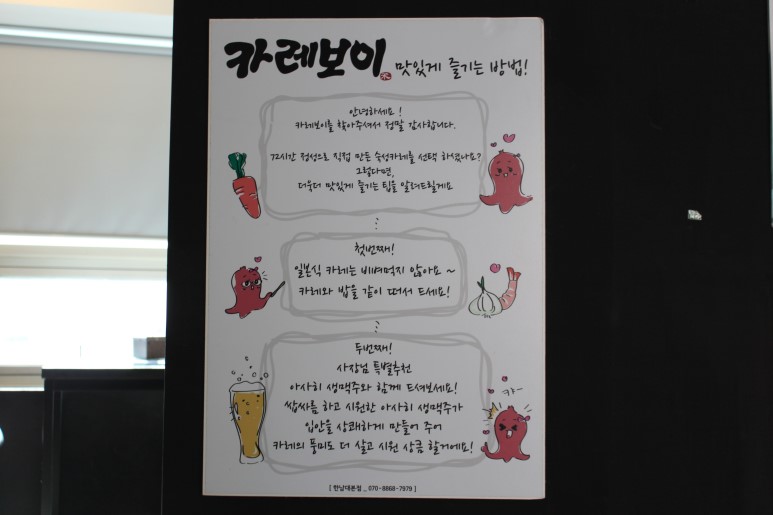 카레보이 맛있게 즐기는 방법!
안녕하세요!
카레보이를 찾아주셔서 정말 감사합니다.
72시간 정성으로 직접 만든 숙성카레를 선택 하셨나요?
그렇다면,
더욱더 맛있게 즐기는 팁을 알려드릴게요
첫번째!
일본식 카레는 비벼먹지 않아요 ~
카레와 밥을 같이 떠서 드세요!
두번째!
사장님 특별추천
아사히 생맥주와 함께 드셔보세요!
쌉싸름 하고 시원한 아사히 생맥주가
입안을 상쾌하게 만들어 주어
카레의 풍미도 더 살고 시원 상큼 할거에요!
캬~
[ 한남대본점 _ 070-8868-7979 ]